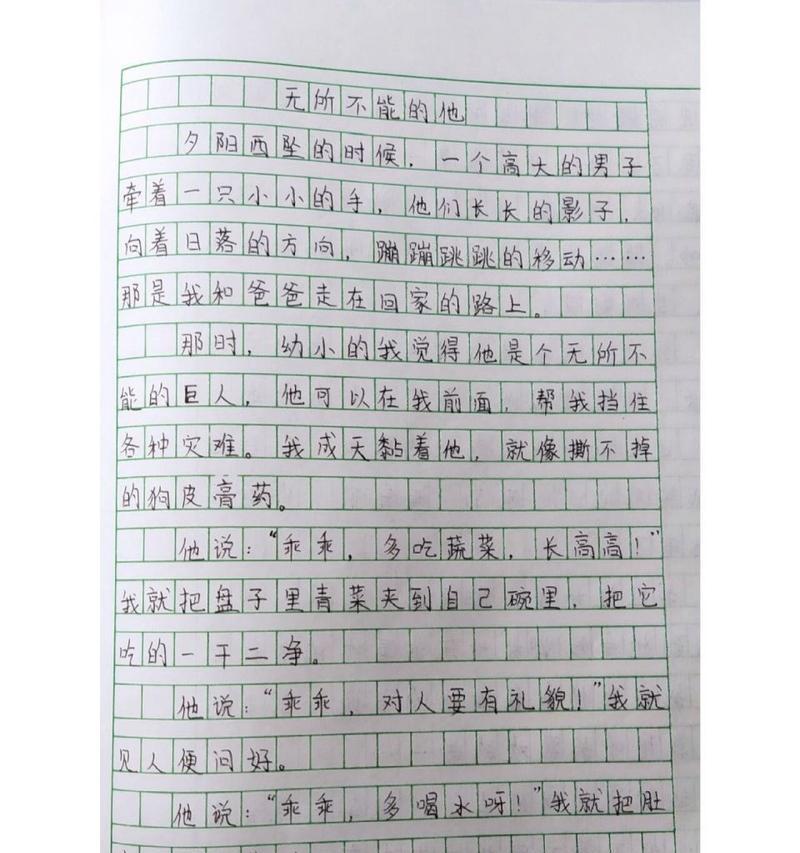 无所不能的他
夕阳西坠的时候，一个高大的男子
牵着一只小小的手，他们长长的影子，
向着日落的方向，蹦蹦跳跳的移动……
那是我和爸爸走在回家的路上。
那时，幼小的我觉得他是个无所不
能的巨人，他可以在我前面，帮我挡住
各种灾难。我成天黏着他，就像撕不掉
的狗皮膏药。
他说：“乖乖，多吃蔬菜，长高高！”
我就把盘子里青菜夹到自己碗里，把它
吃的一干二净。
他说：“乖乖，对人要有礼貌！”我就
见人便问好。
他说：“乖乖，多喝水呀！”我就把肚